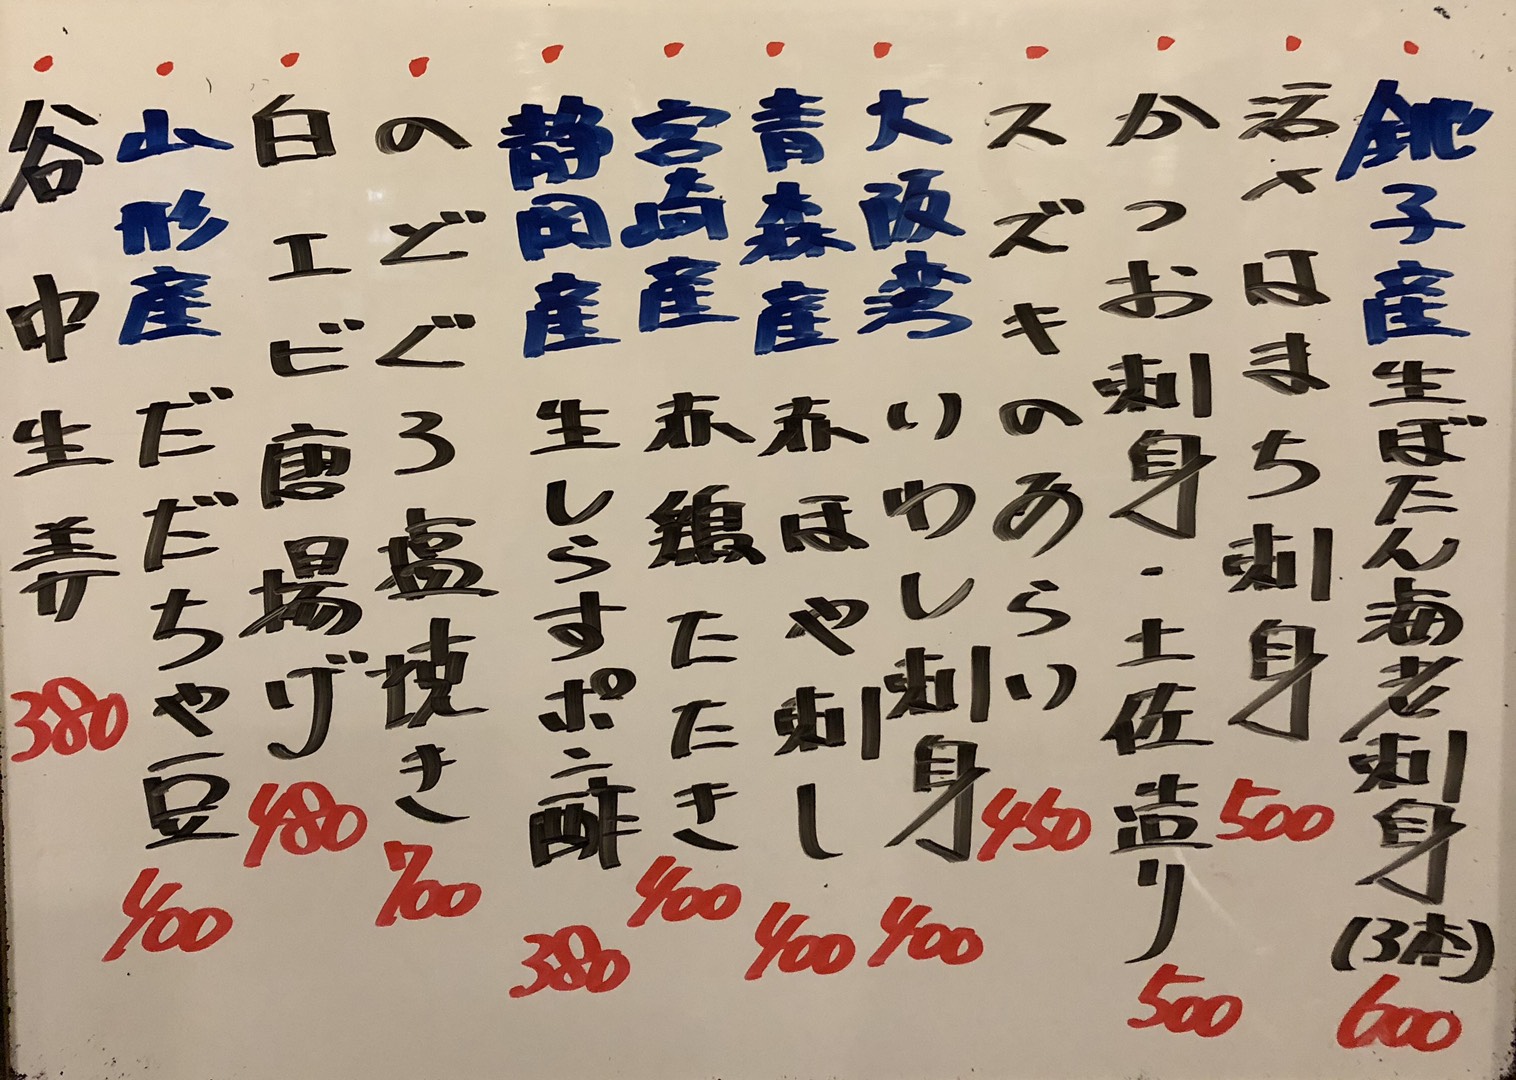 銚子産生ぼたん海老刺身(3本) 600
活〆はまち刺身 500
かつお刺身・土佐造り 500
スズキのあらい 450
大阪湾いわし刺身 400
青森産赤ほや刺し 400
宮崎産赤鶏たたき 400
静岡産生しらすポン酢 380
のどぐろ塩焼き 700
白エビ唐揚げ 480
山形産だだちゃ豆 400
谷中生姜 380